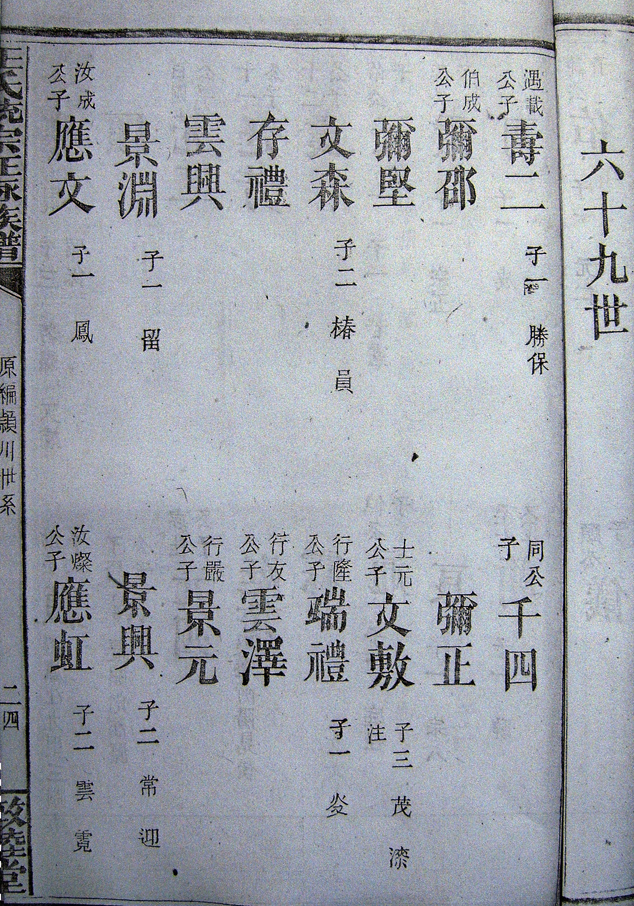 六十九世
遇載公子 壽二 子一 勝保
同公子 千四
伯成公子 彌邵
彌正
彌堅
士元公子 文敷 子三 茂 漆 注
文森 子二 椿 員
行隆公子 瑞禮 子一 炎
存禮
行友公子 雲澤
雲興
行嚴公子 景元
景淵 子一 留
景興 子二 常 迎
汝成公子 應文 子一 鳳
汝燦公子 應虹 子二 雲 霓
王氏統宗正脉族譜
原編潁川世系
二四
敦睦堂